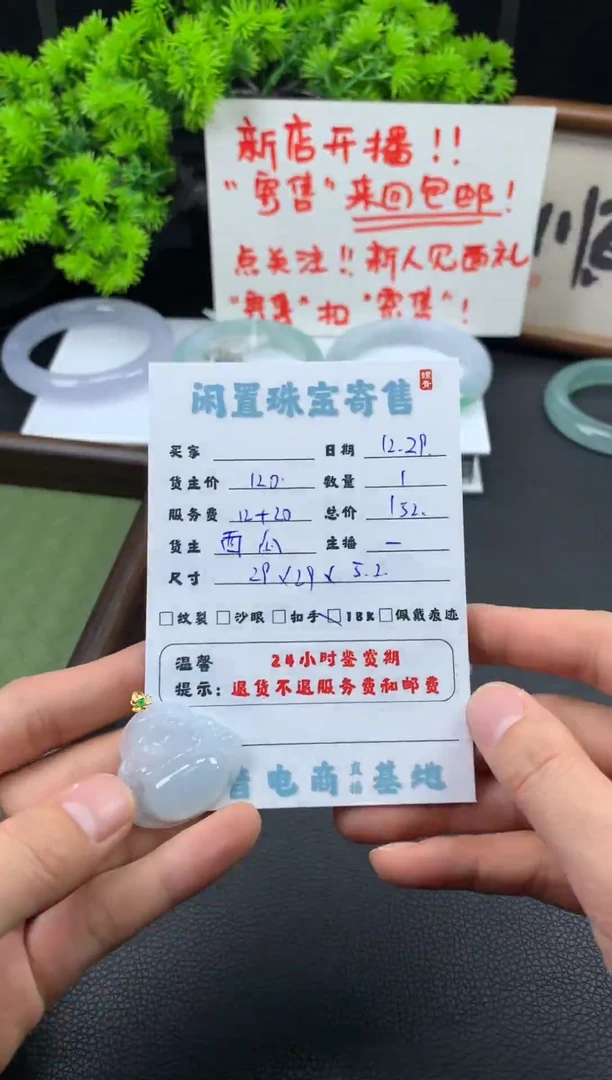 新店开播!!
"寄售"来回包邮!
点关注!!新人见面礼
"寄售"扣"寄售"!
闲置珠宝寄售
买家 日期 12.29
货主价 120. 数量 1
服务费 12+20 总价 152.
货主 主播 一
尺寸 29×29×5.2
□纹裂 □沙眼 □扣手 □18K □佩戴痕迹
温馨 24小时鉴赏期
提示：退货不退服务费和邮费
电商直播基地